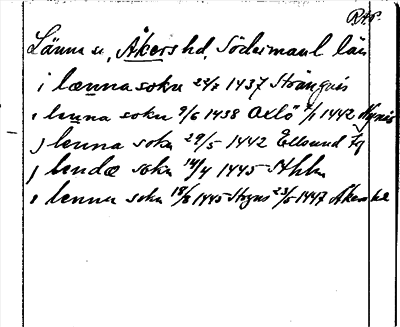 RAP.
Länna sn, Åkers hd, Södermanl län
i lænna sokn 24/2 1437 Strängnäs
i lenna sokn 9/6 1438 Oxlö 4/1 1442
j lenna sokn 29/5 1442 Ellsund
j lendæ sokn 14/4 1445 Sthlm
i lenna sokn 18/8 1445 Strgns 23/5 1447 Åkers hd